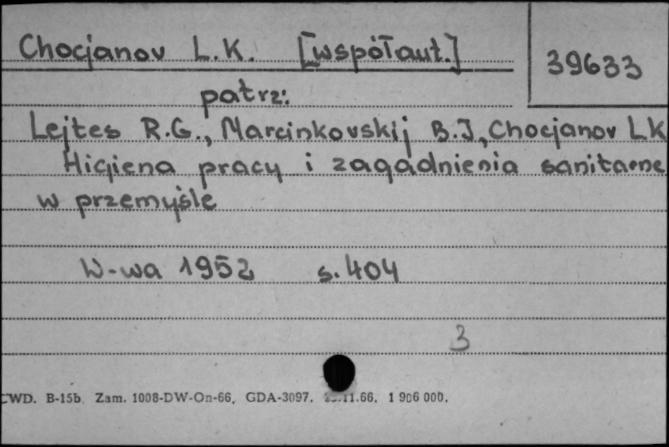 Chocjanov L.K. [współaut.]
39633
patrz:
Lejtes R.G., Marcinkovskij B.I., Chocjanov LK
Higiena pracy i zagadnienia sanitarne
w przemyśle
W-wa 1952 s. 404
3
CWD. B-15b. Zam. 1008-DW-On-66, GDA-3097. .11.66. 1 906 000.